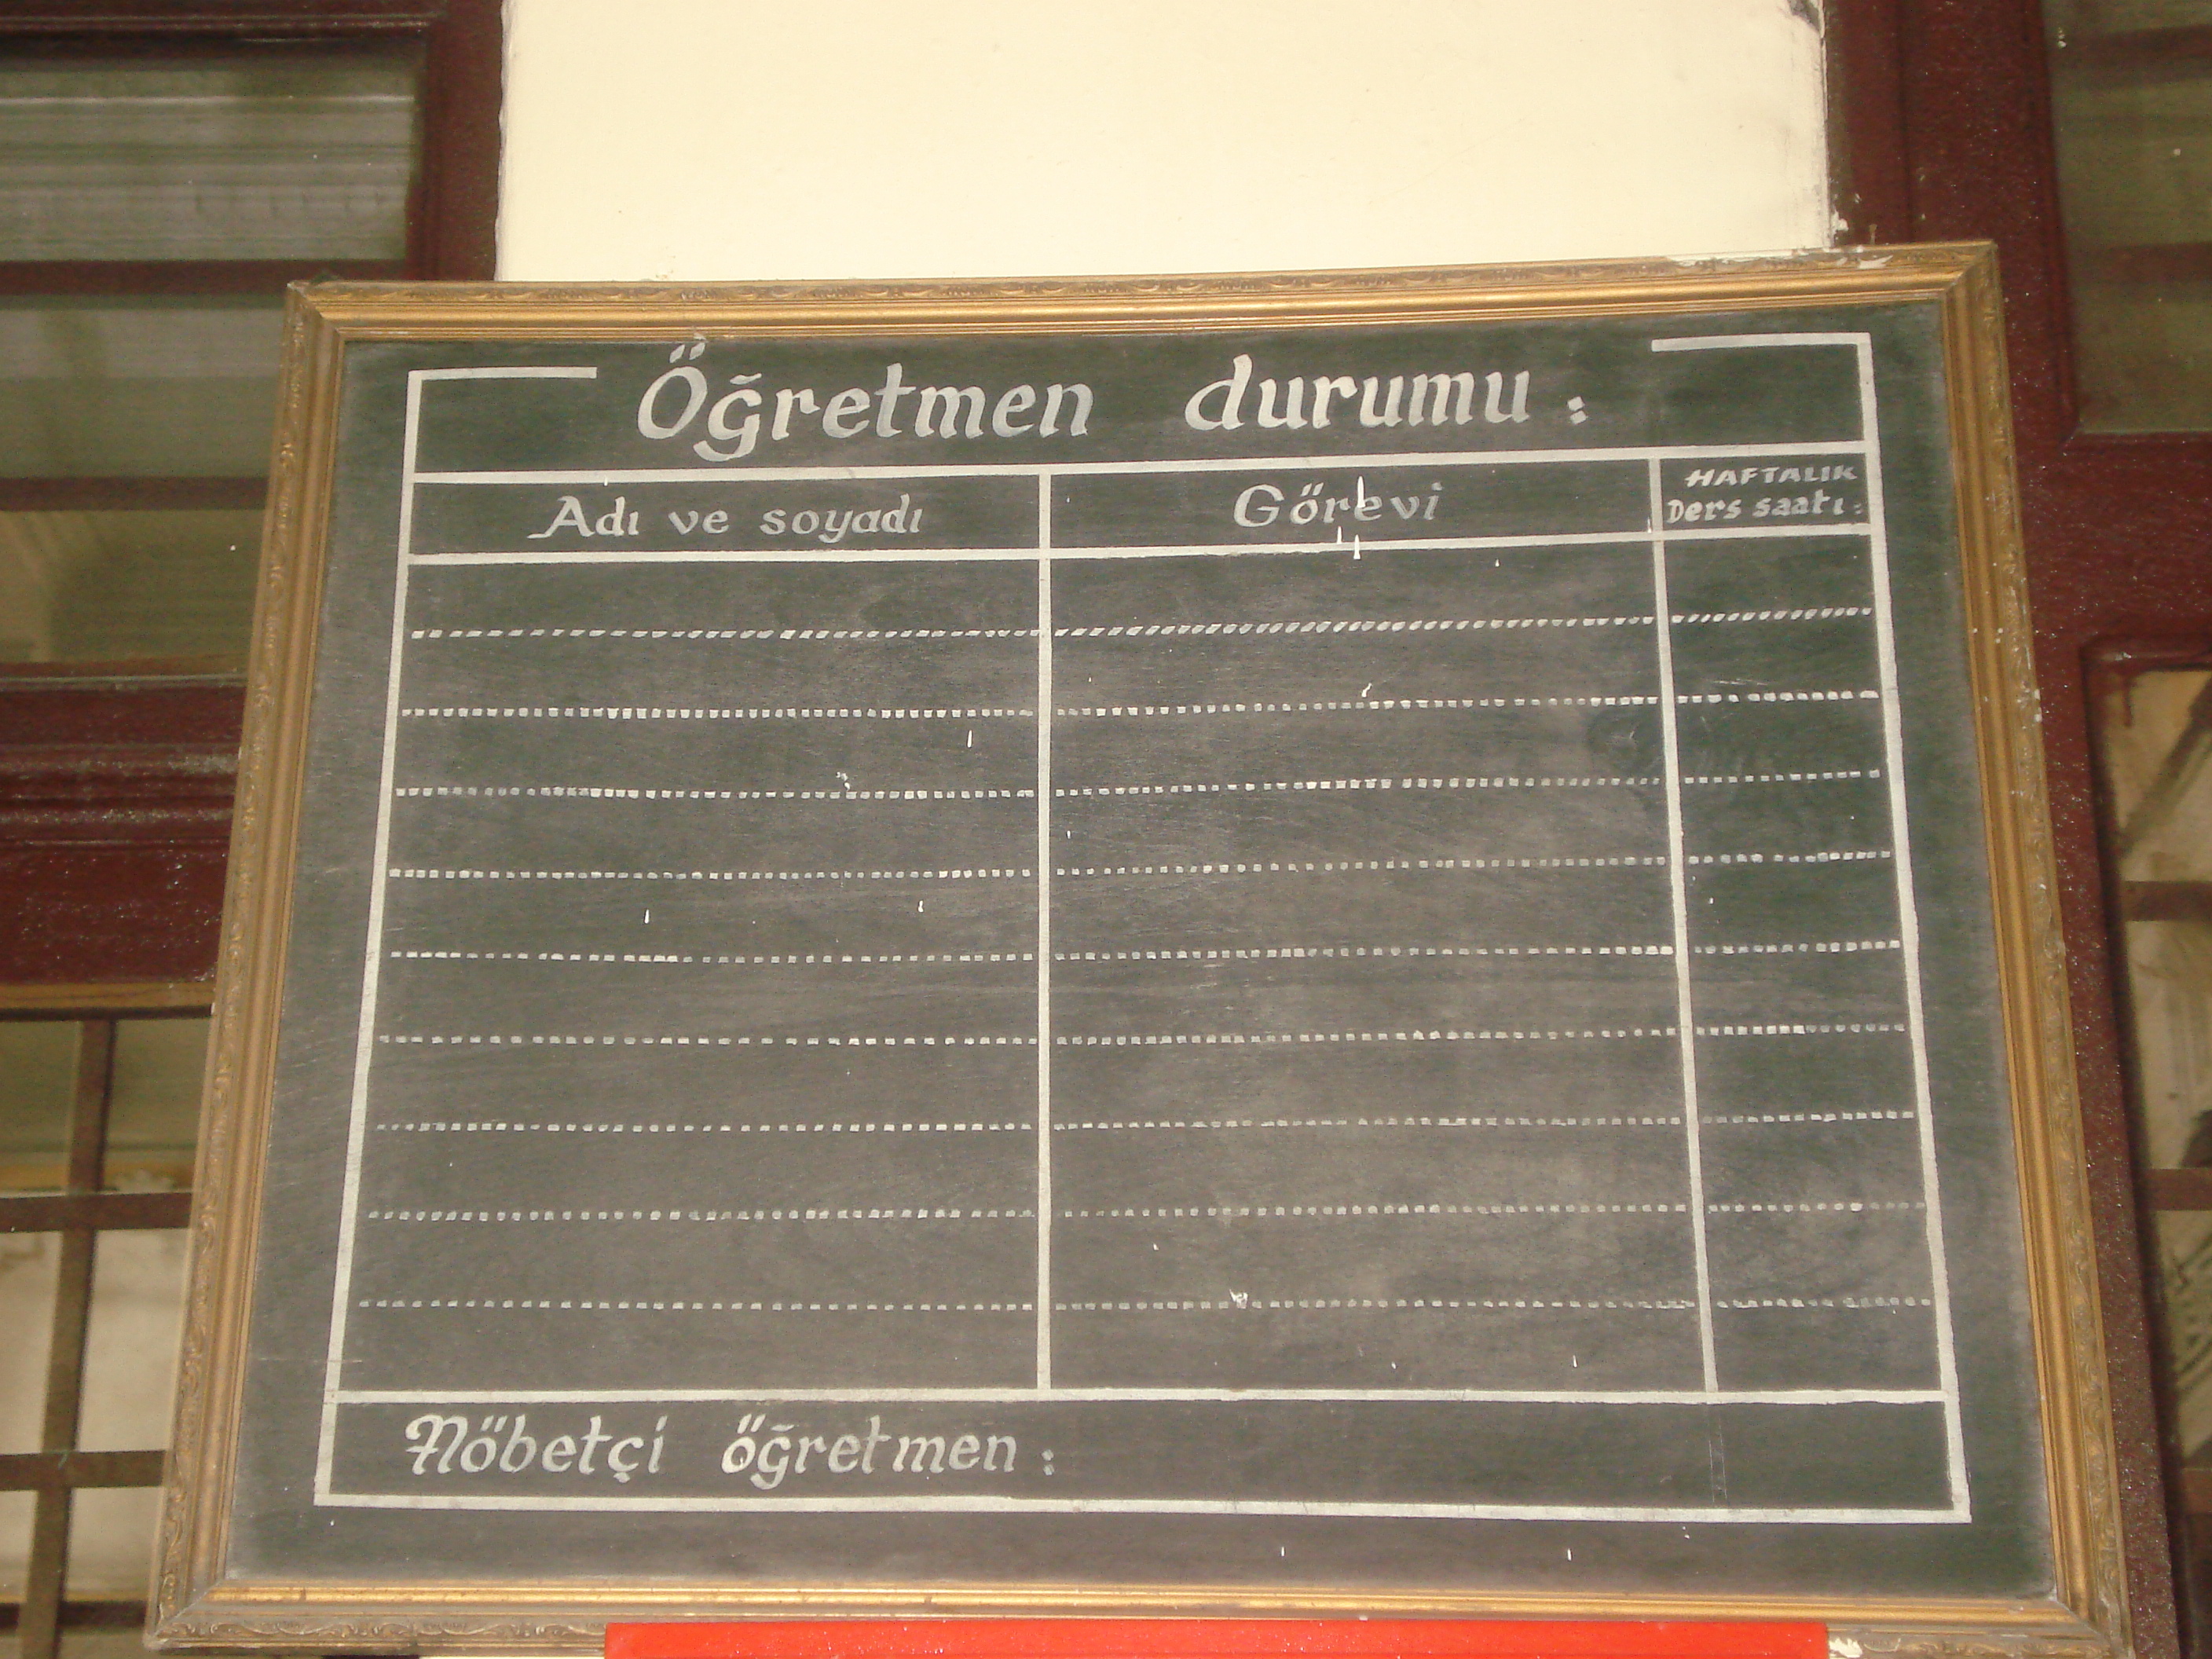 Öğretmen durumu :
Adı ve soyadı
Görevi
HAFTALIK
Ders saatı :
Nöbetçi öğretmen :